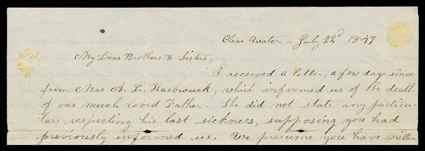 Clear Water - July 22d 1847
My Dear Brothers & Sisters,
I received a letter, a few days since
from Mrs A. L. Hasbrouck, which informed us of the death
of our much loved Father. She did not state any particu-
lars respecting his last sickness, supposing you had
previously informed us. We presume you have written